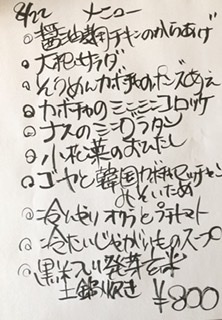 8/22 メニュー
◎醤油麹チキンのからあげ
◎大根サラダ
◎そうめんカボチャのポン酢あえ
◎カボチャのミニミニコロッケ
◎ナスのミニグラタン
◎小松菜のおひたし
◎ゴーヤと韓国カボチャ
みそいため
◎冷やしオクラとプチトマト
◎冷たいじゃがいものスープ
◎黒米 発芽玄米
土鍋炊き ¥800